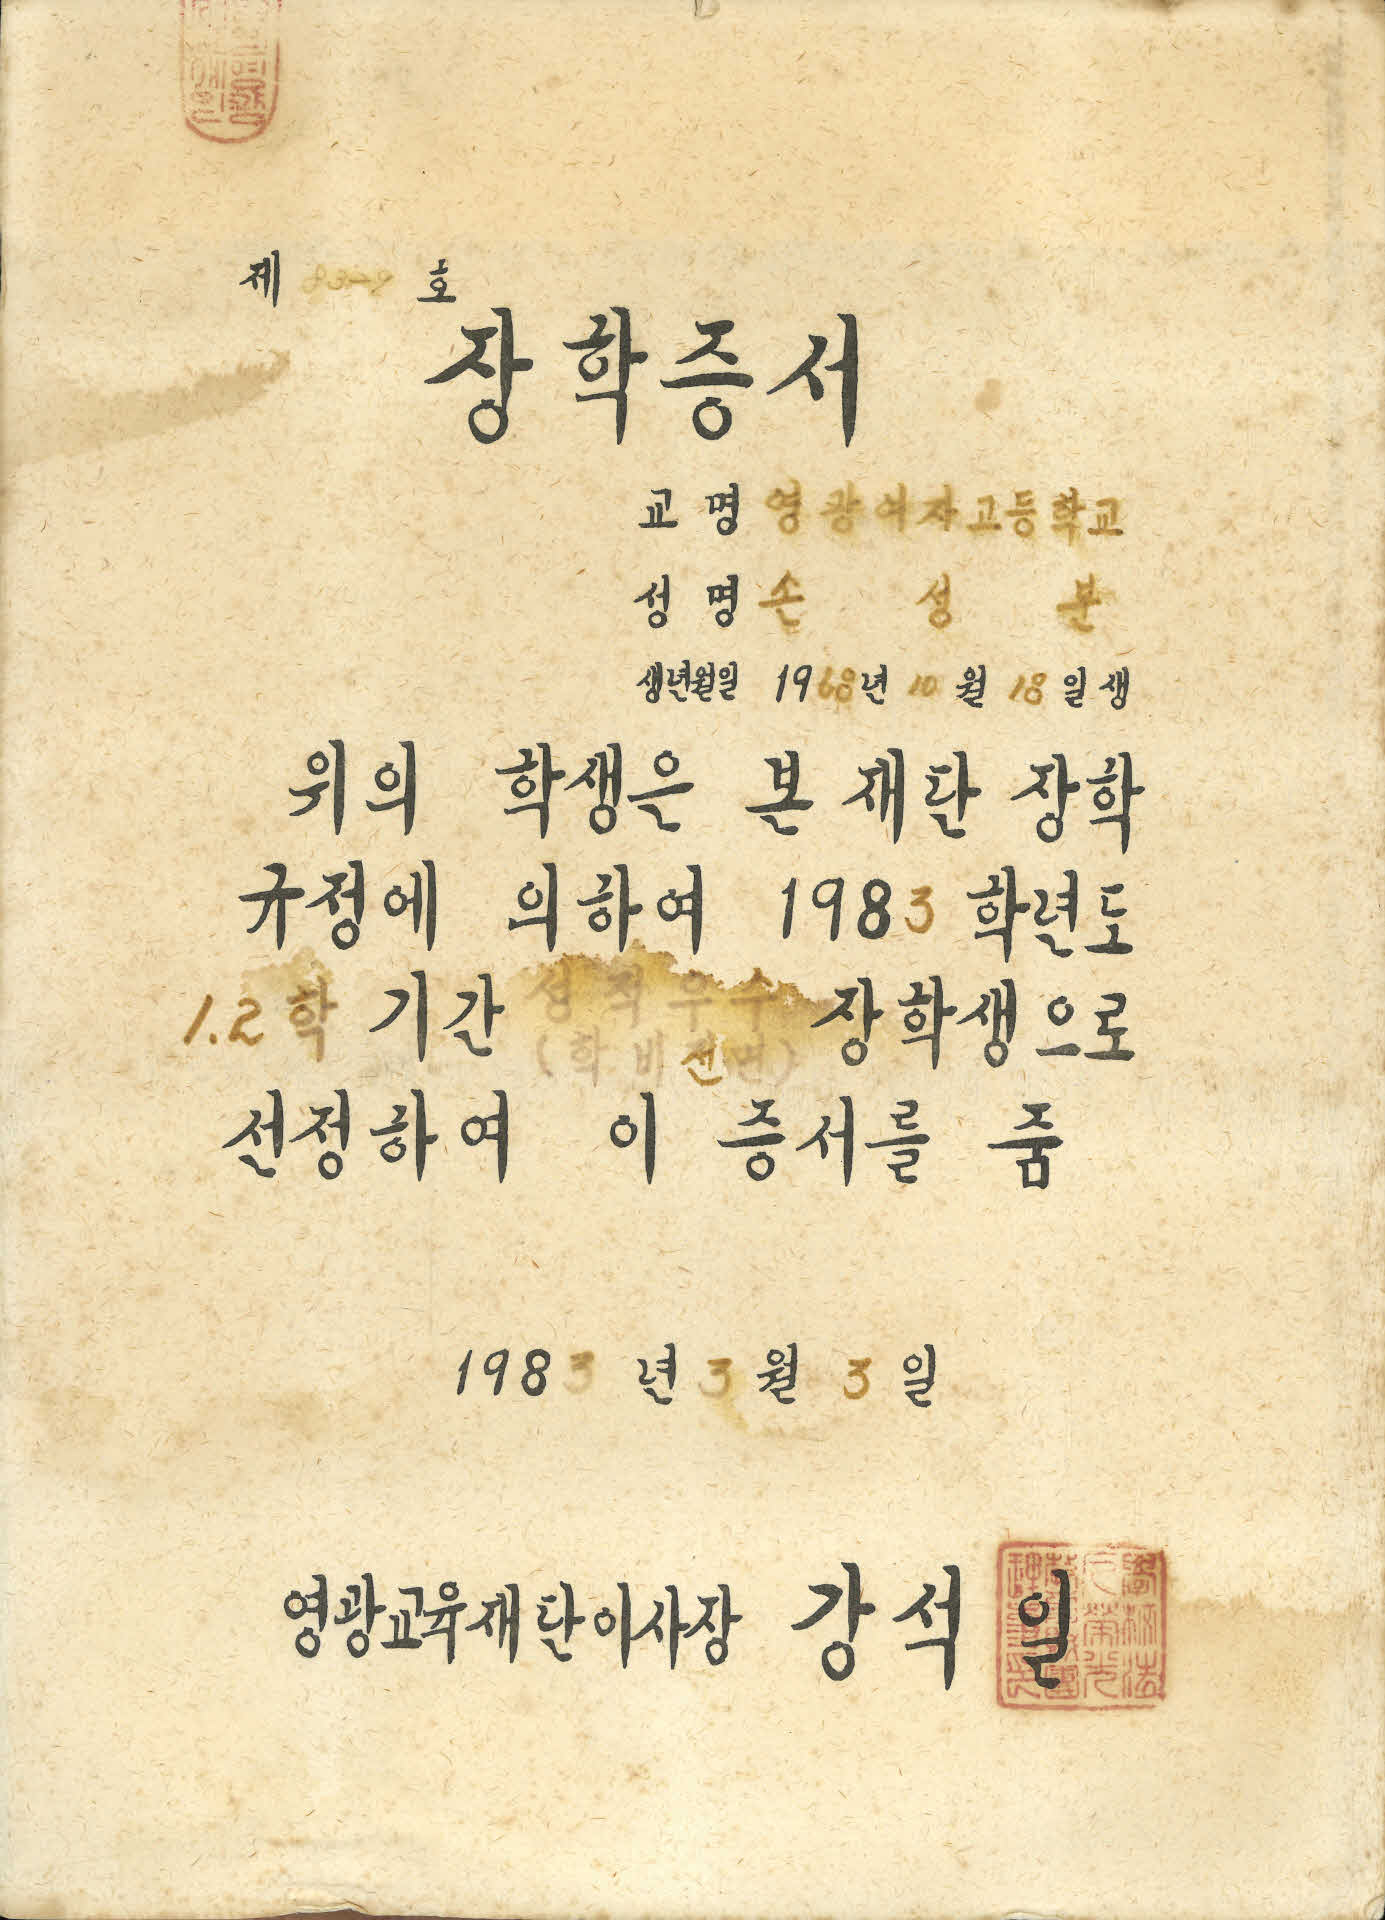 제 83-2 호
장학증서
교명 영광여자고등학교
성명 손 성 분
생년월일 1968년 10월 18일생
위의 학생은 본 재단 장학
규정에 의하여 1983 학년도
1.2학 기간 성적우수 장학생으로
(학비전면)
선정하여 이 증서를 줌
1983년 3월 3일
영광교육재단이사장 강석일